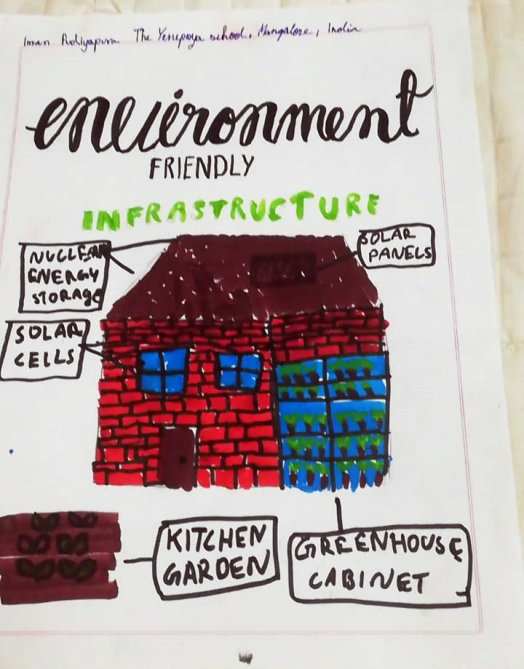 Iman Puliyapura The Yenepoya school, Mangalore, India
environment
FRIENDLY
INFRASTRUCTURE
NUCLEAR
ENERGY
STORAGE
SOLAR
PANELS
SOLAR
CELLS
KITCHEN
GARDEN
GREENHOUSE
CABINET